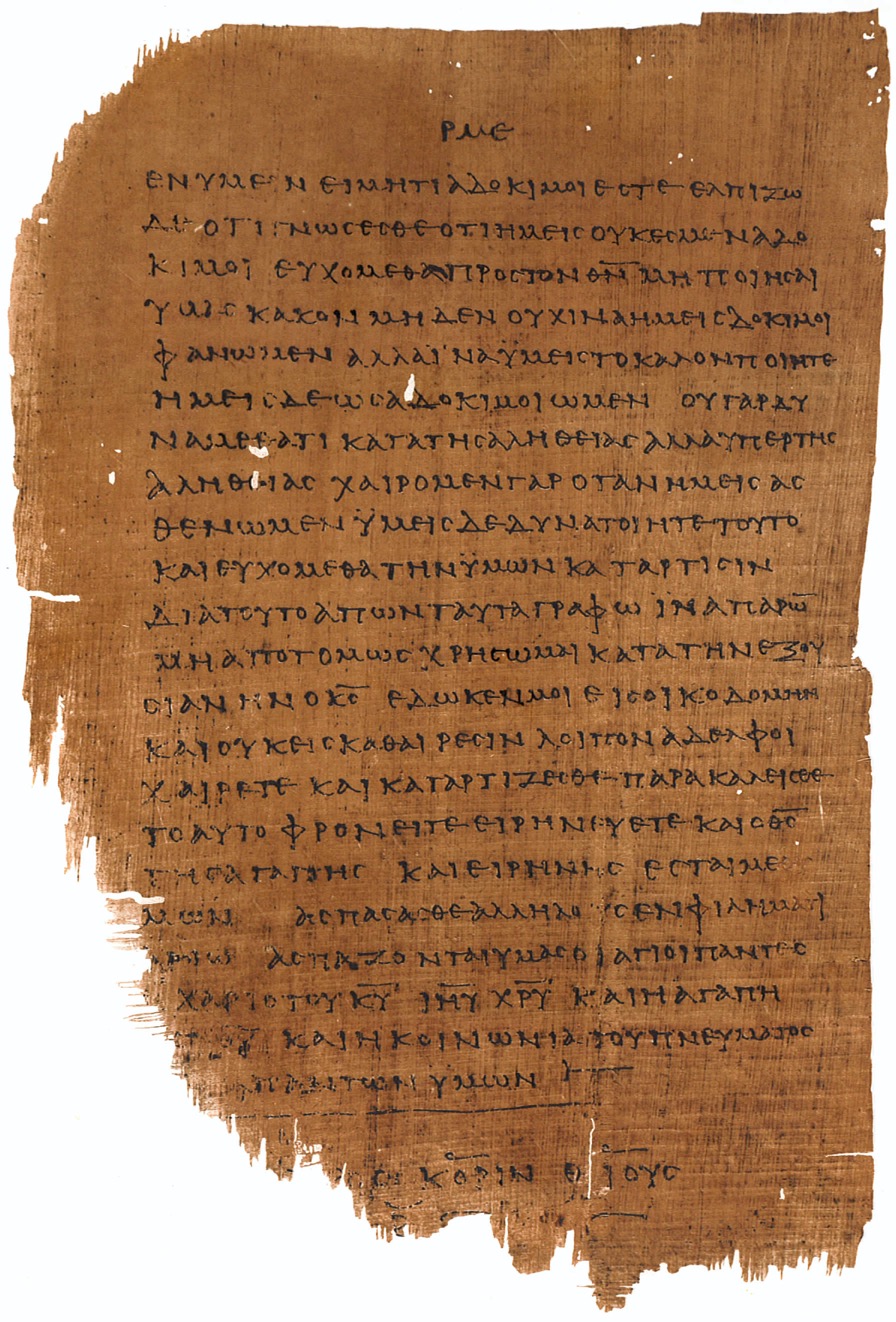 ΡΜΕ
ΕΝ ΥΜΕΙΝ ΕΙΜΗΤΙ ΑΔΟΚΙΜΟΙ ΕΣΤΕ ΕΛΠΙΖΩ
ΔΕ ΟΤΙ ΓΝΩΣΕΣΘΕ ΟΤΙ ΗΜΕΙΣ ΟΥΚ ΕΣΜΕΝ ΑΔΟ
ΚΙΜΟΙ ΕΥΧΟΜΕΘΑ ΠΡΟΣ ΤΟΝ ΘΝ̅ ΜΗ ΠΟΙΗΣΑΙ
ΥΜΑΣ ΚΑΚΟΝ ΜΗΔΕΝ ΟΥΧ ΙΝΑ ΗΜΕΙΣ ΔΟΚΙΜΟΙ
ΦΑΝΩΜΕΝ ΑΛΛ ΑΙΝΑ ΫΜΕΙΣ ΤΟ ΚΑΛΟΝ ΠΟΙΗΤΕ
ΗΜΕΙΣ ΔΕ ΩΣ ΑΔΟΚΙΜΟΙ ΩΜΕΝ ΟΥ ΓΑΡ ΔΥ
ΝΑΜΕΘΑ ΤΙ ΚΑΤΑ ΤΗΣ ΑΛΗΘΕΙΑΣ ΑΛΛΑ ΥΠΕΡ ΤΗΣ
ΑΛΗΘΕΙΑΣ ΧΑΙΡΟΜΕΝ ΓΑΡ ΟΤΑΝ ΗΜΕΙΣ ΑΣ
ΘΕΝΩΜΕΝ ΫΜΕΙΣ ΔΕ ΔΥΝΑΤΟΙ ΗΤΕ ΤΟΥΤΟ
ΚΑΙ ΕΥΧΟΜΕΘΑ ΤΗΝ ΫΜΩΝ ΚΑΤΑΡΤΙΣΙΝ
ΔΙΑ ΤΟΥΤΟ ΑΠΩΝ ΤΑΥΤΑ ΓΡΑΦΩ ΙΝΑ ΠΑΡΩ̅
ΜΗ ΑΠΟΤΟΜΩΣ ΧΡΗΣΩΜΑΙ ΚΑΤΑ ΤΗΝ ΕΞΟΥ
ΣΙΑΝ ΗΝ Ο ΚΣ̅ ΕΔΩΚΕΝ ΜΟΙ ΕΙΣ ΟΙΚΟΔΟΜΗΝ
ΚΑΙ ΟΥΚ ΕΙΣ ΚΑΘΑΙΡΕΣΙΝ ΛΟΙΠΟΝ ΑΔΕΛΦΟΙ
ΧΑΙΡΕΤΕ ΚΑΙ ΚΑΤΑΡΤΙΖΕΣΘΕ ΠΑΡΑΚΑΛΕΙΣΘΕ
ΤΟ ΑΥΤΟ ΦΡΟΝΕΙΤΕ ΕΙΡΗΝΕΥΕΤΕ ΚΑΙ Ο ΘΣ̅
ΤΗΣ ΑΓΑΠΗΣ ΚΑΙ ΕΙΡΗΝΗΣ ΕΣΤΑΙ ΜΕ
ΜΩΝ ΑΣΠΑΣΑΣΘΕ ΑΛΛΗΛΟΥΣ ΕΝ ΦΙΛΗΜΑΤΙ
ΑΓΙΩ ΑΣΠΑΖΟΝΤΑΙ ΥΜΑΣ ΟΙ ΑΓΙΟΙ ΠΑΝΤΕΣ
ΧΑΡΙΣ ΤΟΥ ΚΥ̅ ΙΗΥ̅ ΧΡΥ̅ ΚΑΙ Η ΑΓΑΠΗ
ΚΑΙ Η ΚΟΙΝΩΝΙΑ ΤΟΥ ΠΝΕΥΜΑΤΟΣ
ΠΑΝΤΩΝ ΥΜΩΝ
ΚΟΡΙΝΘΙΟΥΣ